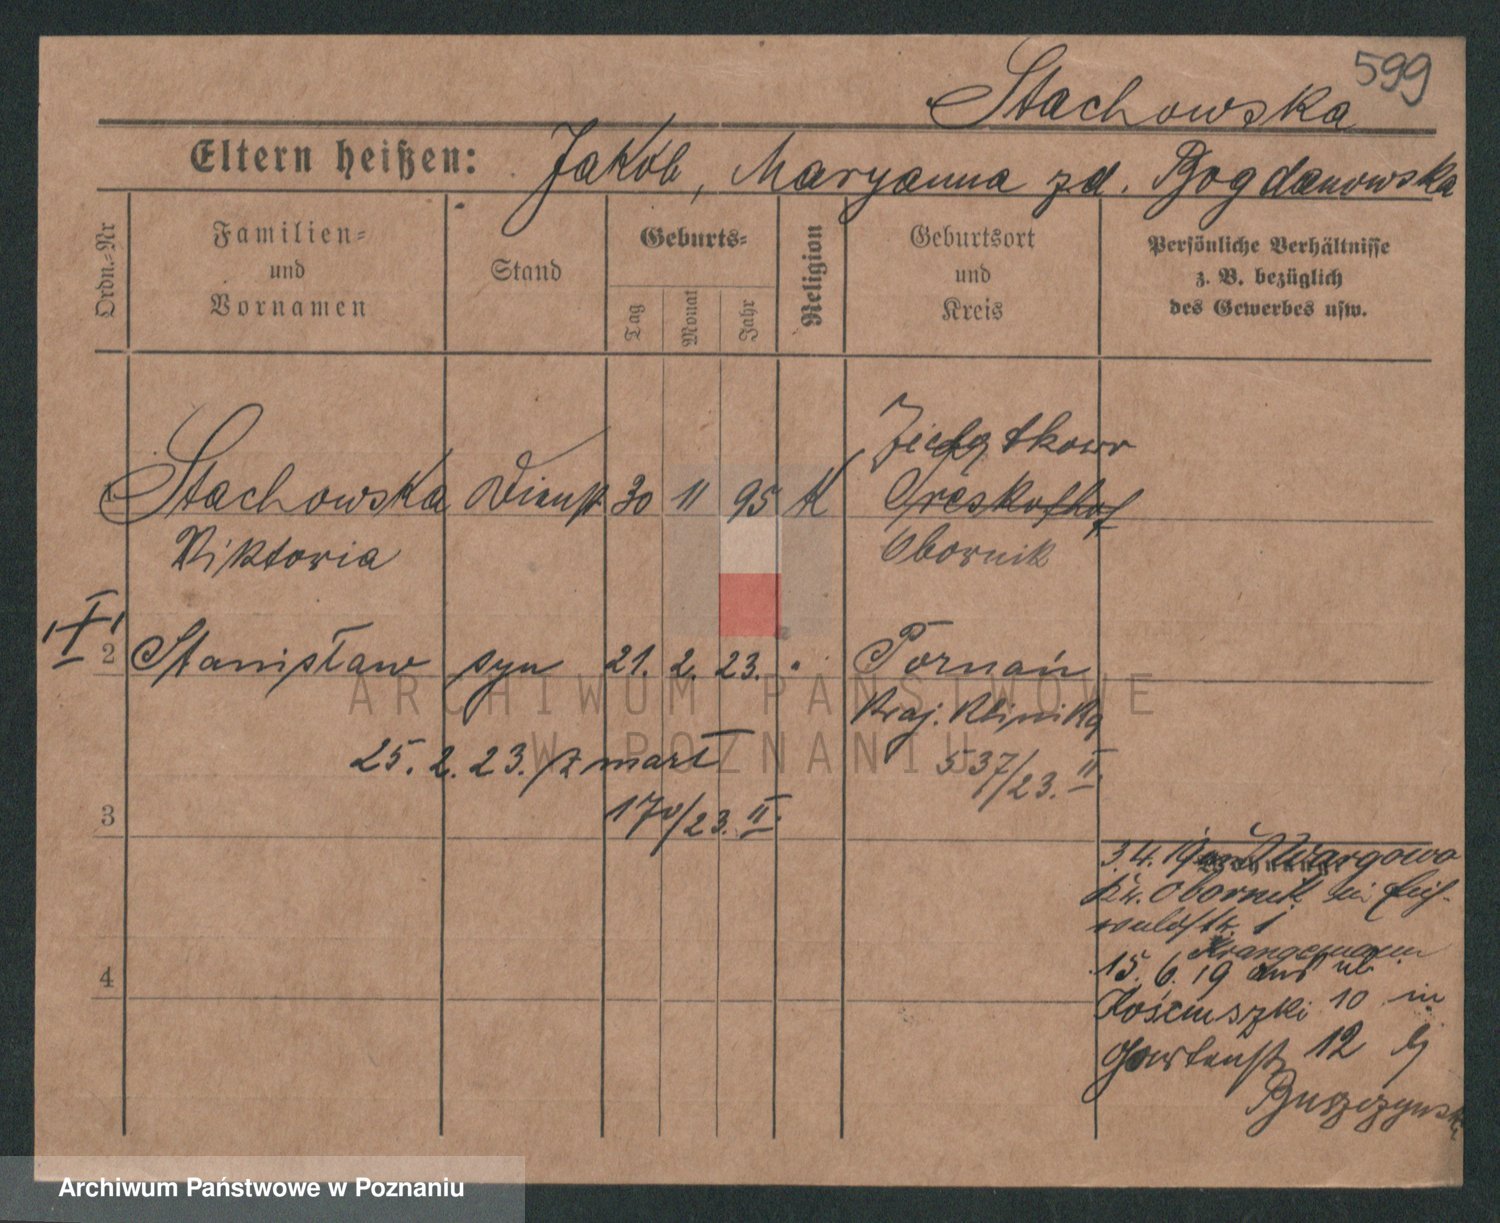 599
Stachowska
Eltern heißen: Jakób, Maryanna zd. Bogdanowska
Ordn.-Nr
Familien-
und
Vornamen
Stand
Geburts-
Tag
Monat
Jahr
Religion
Geburtsort
und
Kreis
Persönliche Verhältnisse
z. B. bezüglich
des Gewerbes usw.
Stachowska Dienst 30 11 95 K
Viktoria
Obornik
2 Stanisław syn 21. 2. 23. Poznań
Kraj. Klinika
25. 2. 23. zmarł 537/23. II.
170/23. II.
3
4
3. 4. 19 Wargowo
Kr. Obornik in Eich-
waldstr. 1
15. 6. 19 aus ul.
Kościuszki 10 in
Gartenstr 12 bj
ARCHIWUM PAŃSTWOWE
W POZNANIU
Archiwum Państwowe w Poznaniu